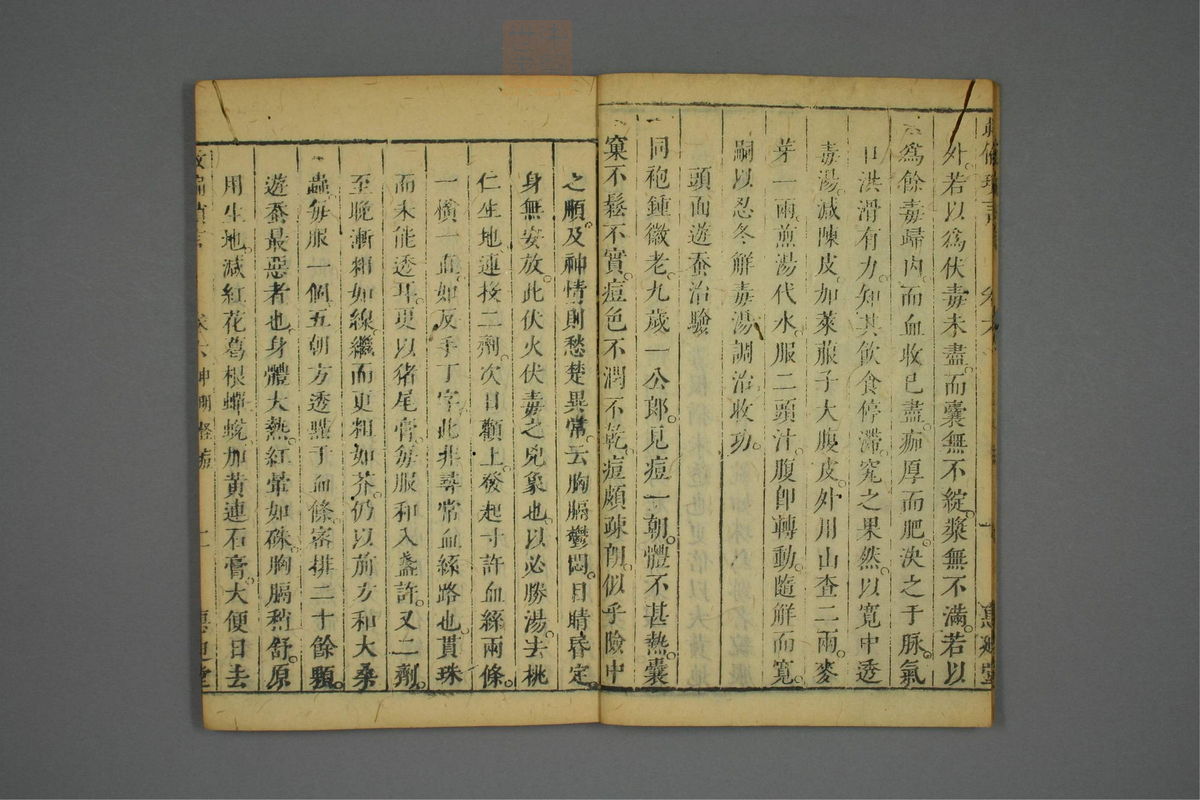 外若以爲伏毒未盡而囊無不綻漿無不滿若以
爲餘毒歸内而血收已盡痂厚而肥决之于脉氣
口洪滑有力知其飲食停滯究之果然以寛中透
毒湯减陳皮加萊菔子大腹皮外用山查二兩麥
芽一兩煎湯代水服二頭汁腹卽轉動隨解而寛
嗣以忍冬解毒湯調治收功
頭面遊蚕治驗
同袍鍾徽老九歲一公郎見痘一朝體不甚熱囊
窠不鬆不實痘色不潤不乾痘頗疎朗似乎險中
之順及神情則愁楚異常云胸膈鬱悶目睛昏定
身無安放此伏火伏毒之兇象也以必勝湯去桃
仁生地連投二劑次日顴上發起寸許血絲兩條
一横一血如反手丁字此非尋常血絲路也貫珠
而未能透耳更以猪尾膏毎服和入盞許又二劑
至晩漸粗如線繼而更粗如芥仍以前方和大桑
蟲毎服一個五朝方透點于血條密排二十餘顆
遊蚕最惡者也身體大熱紅暈如硃胸膈稍舒原
用生地减紅花葛根蟬蛻加黄連石膏大便日去